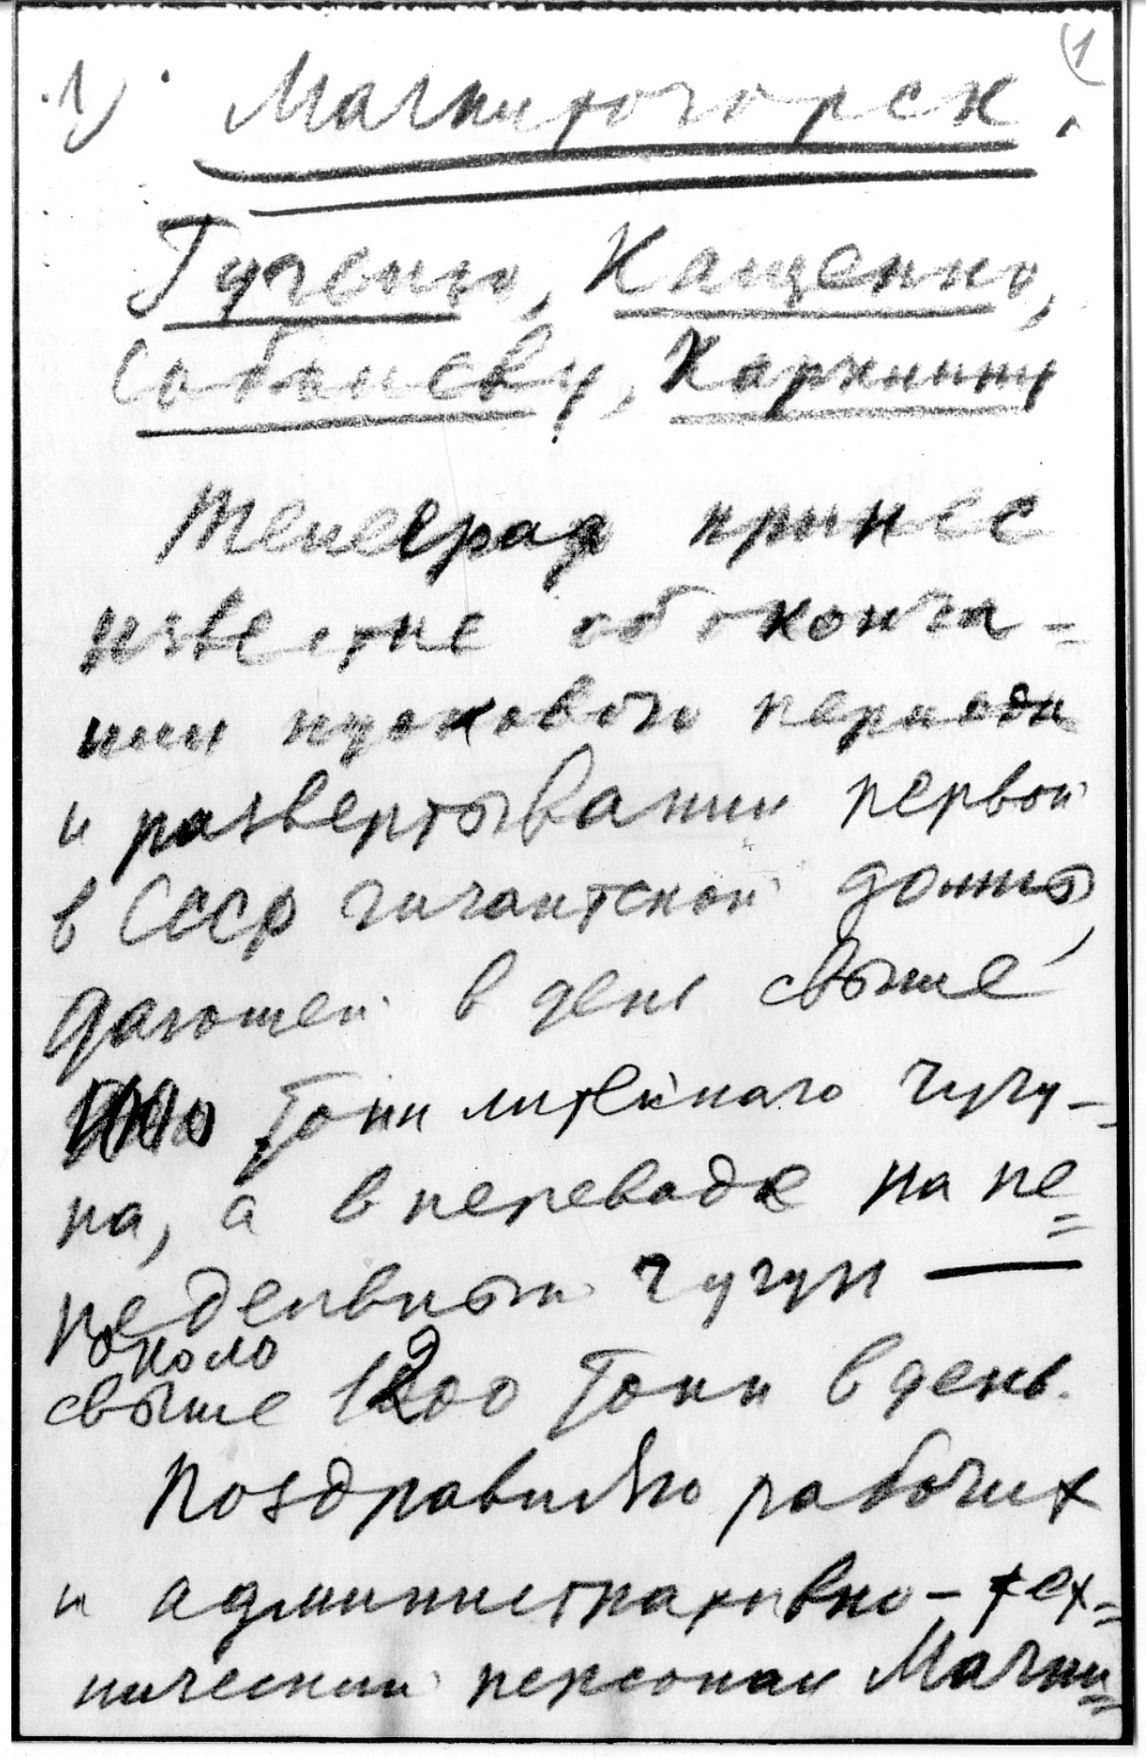 (1
1) Магнитогорск.
Гугелю, Кащенко,
Собяневу, Карклину
Телеграф принес
известие об оконча-
нии пускового периода
и развертывании первой
в СССР гигантской домны,
дающей в день свыше
1000 тонн литейного чугу-
на, а в переводе на пе-
редельный чугун —
около
свыше 1200 тонн в день.
Поздравляю рабочих
и административно-тех-
нический персонал Магни-